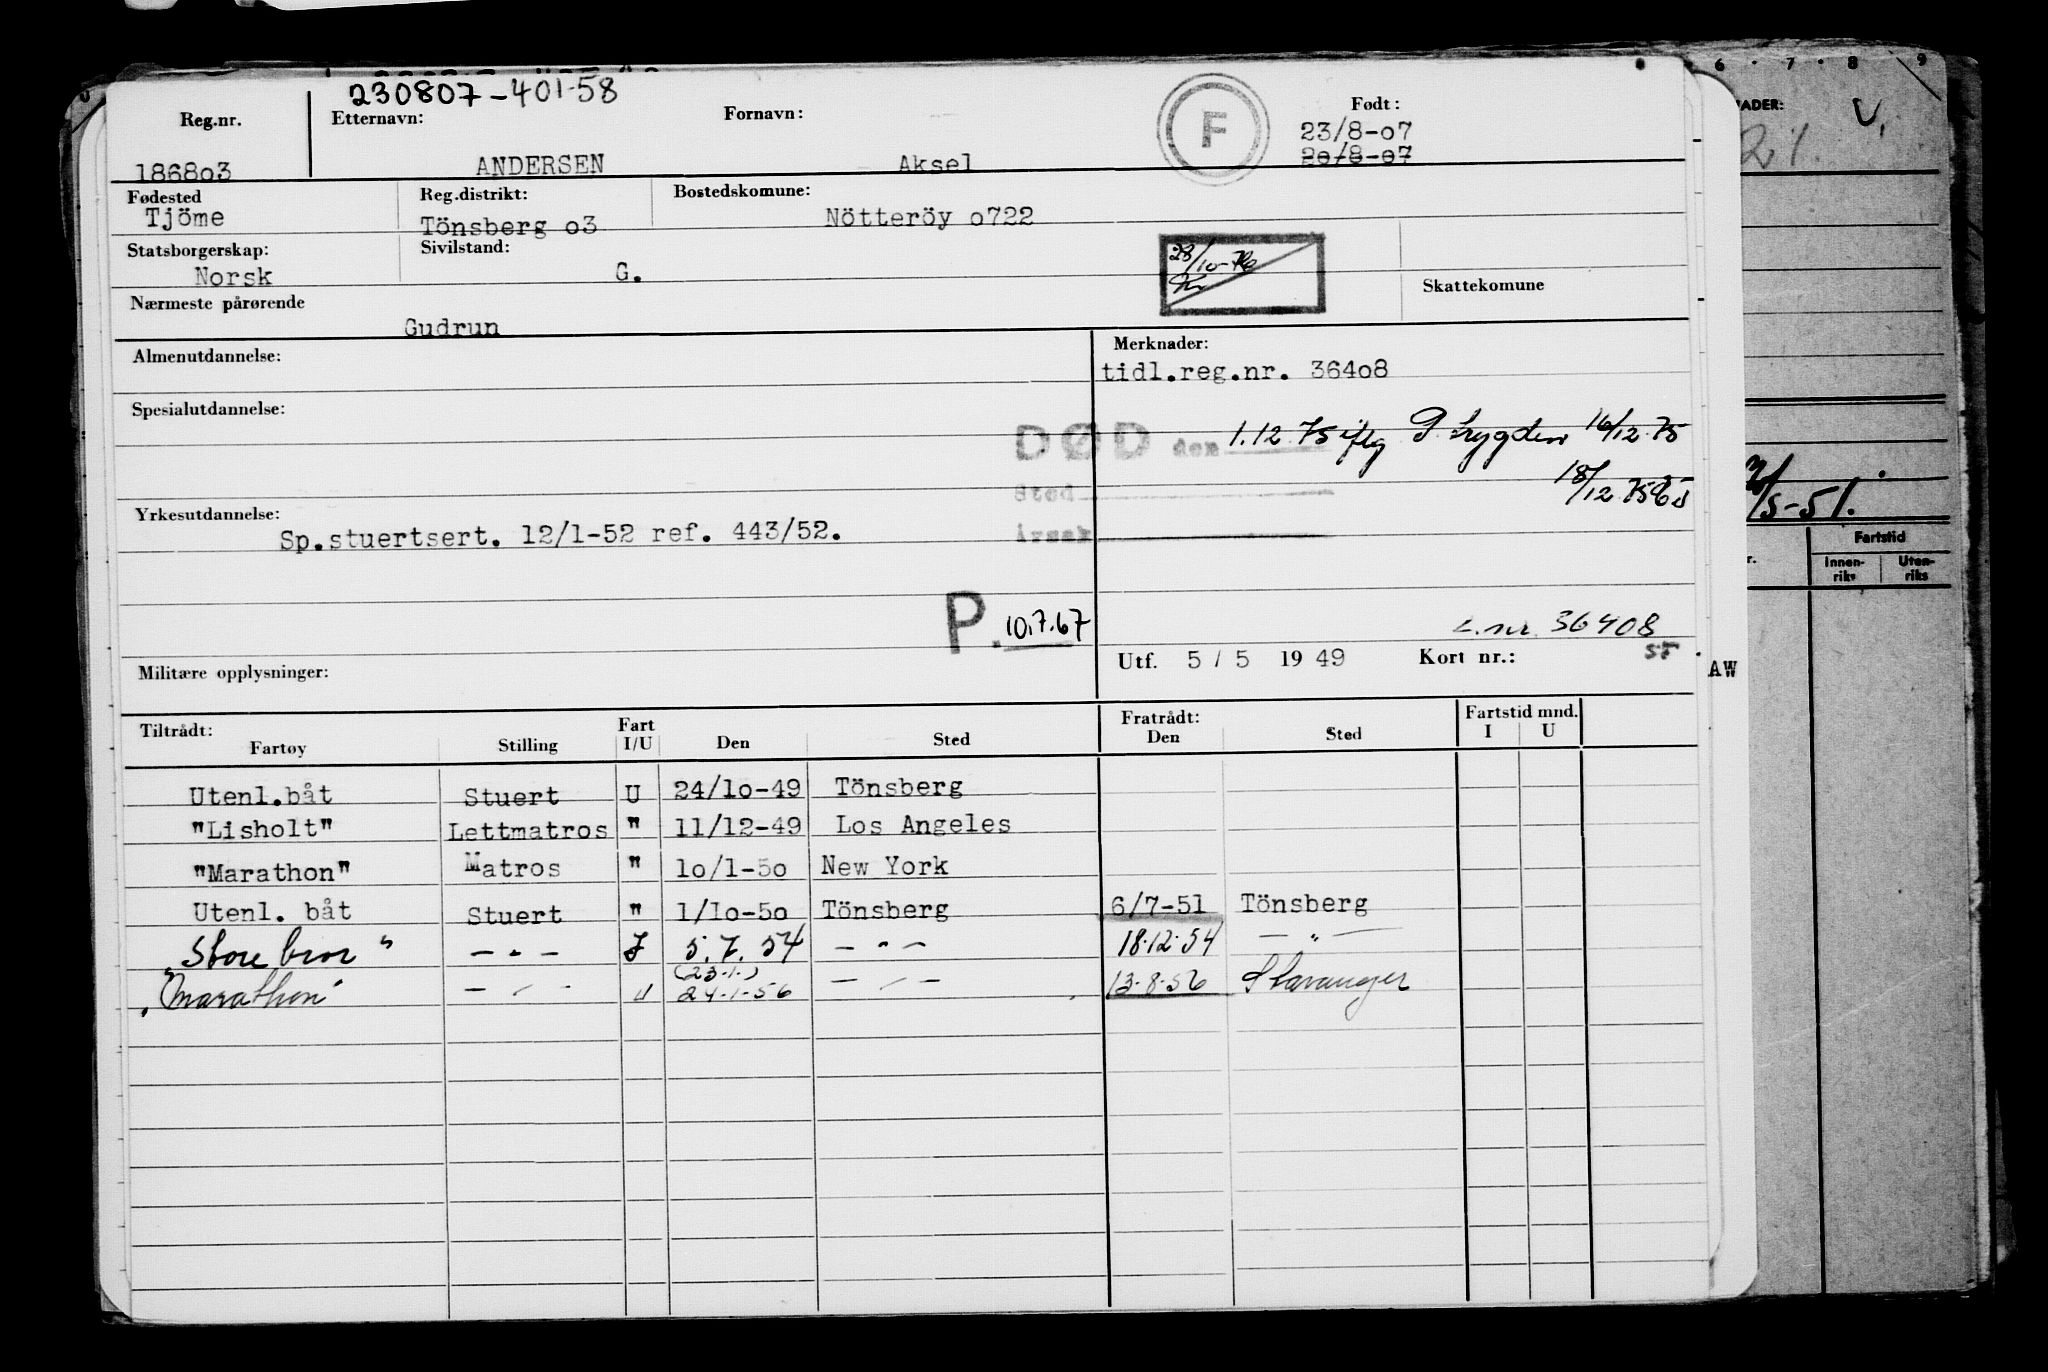 230807-401-58
Reg.nr. Etternavn: Fornavn: F Født:
23/8-o7
1868o3 ANDERSEN Aksel 2o/8-o7
Fødested Reg.distrikt: Bostedskomune:
Tjöme Tönsberg o3 Nötteröy o722
Statsborgerskap: Sivilstand:
Norsk G. 28/10-76
Skattekomune
Nærmeste pårørende
Gudrun
Almenutdannelse: Merknader:
tidl.reg.nr. 364o8
Spesialutdannelse:
DØD den 1.12.75 iflg P.trygden 16/12.75
Sted 18/12.75
Årsak
Yrkesutdannelse:
Sp.stuertsert. 12/1-52 ref. 443/52.
P. 10.7.67
L.nr. 36408
ST
Militære opplysninger: Utf. 5 / 5 19 49 Kort nr.:
Tiltrådt: Fart Fratrådt: Fartstid mnd.
Fartøy Stilling I/U Den Sted Den Sted I U
Utenl.båt Stuert U 24/1o-49 Tönsberg
"Lisholt" Lettmatros " 11/12-49 Los Angeles
"Marathon" Matros " 1o/1-5o New York
Utenl. båt Stuert " 1/1o-5o Tönsberg 6/7-51 Tönsberg
"Store bror" — " — I 5.7.54 — " — 18.12.54 — " —
(23.1.)
"Marathon" — " — U 24.1.56 — " — 13.8.56 Stavanger
6 . 7 . 8 9
NADER: V.
21.
/5-51.
Fartstid
r. Innen-riks Uten-riks
AW